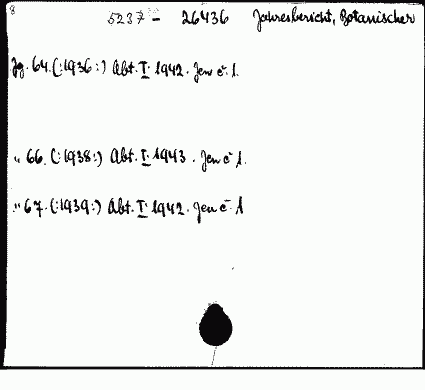 8
5237 - 26436 Jahresbericht, Botanischer
Jg. 64.(:1936:) Abt. I. 1942. Jen č. 1.
" 66. (:1938:) Abt. I. 1943. Jen č 1.
" 67. (:1939:) Abt. I. 1942. Jen č. 1